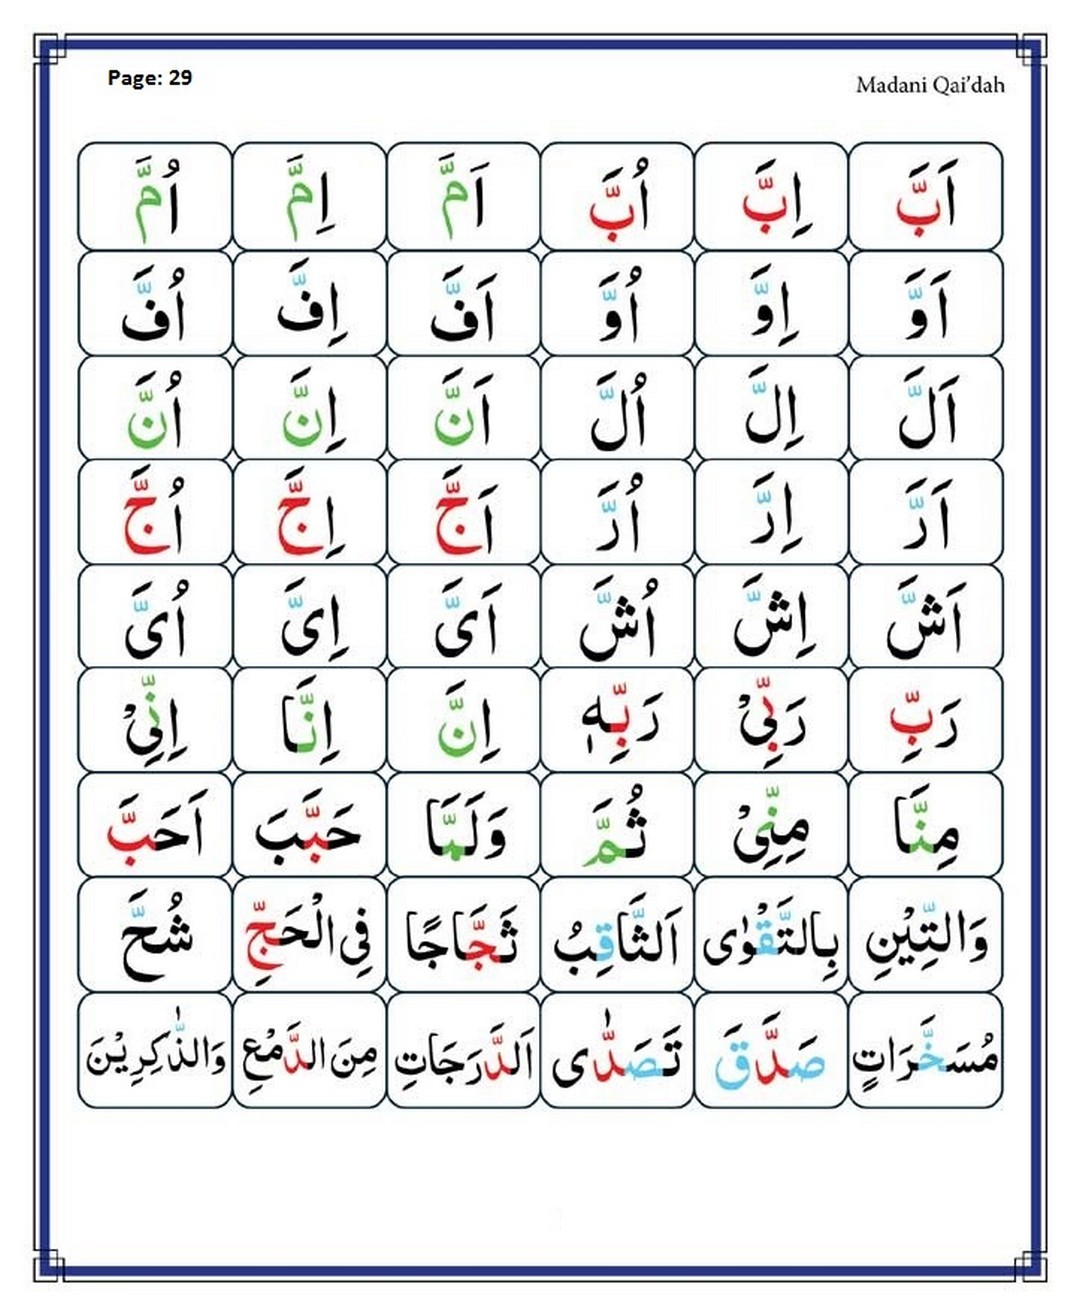 Page: 29
Madani Qai'dah
اَبَّ اِبَّ اُبَّ اَمَّ اِمَّ اُمَّ
اَوَّ اِوَّ اُوَّ اَفَّ اِفَّ اُفَّ
اَلَّ اِلَّ اُلَّ اَنَّ اِنَّ اُنَّ
اَرَّ اِرَّ اُرَّ اَجَّ اِجَّ اُجَّ
اَشَّ اِشَّ اُشَّ اَىَّ اِىَّ اُىَّ
رَبِّ رَبِّىْ رَبِّهٖ اِنَّ اِنَّا اِنِّىْ
مِنَّا مِنِّىْ ثُمَّ وَلَمَّا حَبَّبَ اَحَبَّ
وَالتِّيْنِ بِالتَّقْوٰى اَلثَّاقِبُ ثَجَّاجًا فِى الْحَجِّ شُحَّ
مُسَخَّرَاتٍ صَدَّقَ تَصَدّٰى اَلدَّرَجَاتِ مِنَ الدَّمْعِ وَالذّٰكِرِيْنَ